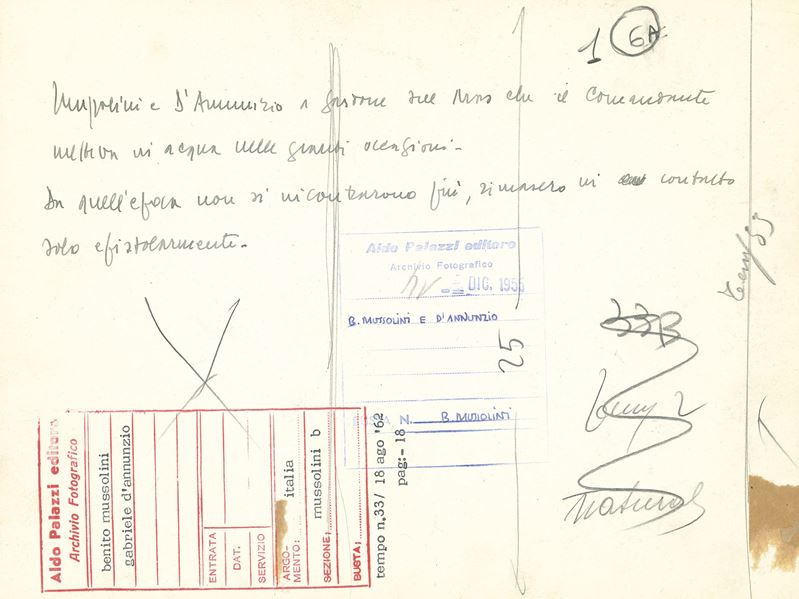 1 6A
Mussolini e D'Annunzio a bordo del Mas che il Comandante
metteva in acqua nelle grandi occasioni.
Da quell'epoca non si incontrarono più, rimasero in contatto
solo epistolarmente.
Aldo Palazzi editore
Archivio Fotografico
DIC. 1955
B. MUSSOLINI E D'ANNUNZIO
25
N. B. MUSSOLINI
33B
natural
Aldo Palazzi editore
Archivio Fotografico
benito mussolini
gabriele d'annunzio
ENTRATA
DAT.
SERVIZIO
ARGO-
MENTO: italia
SEZIONE; mussolini b
BUSTA;
tempo n.33/ 18 ago '62
pag:- 18